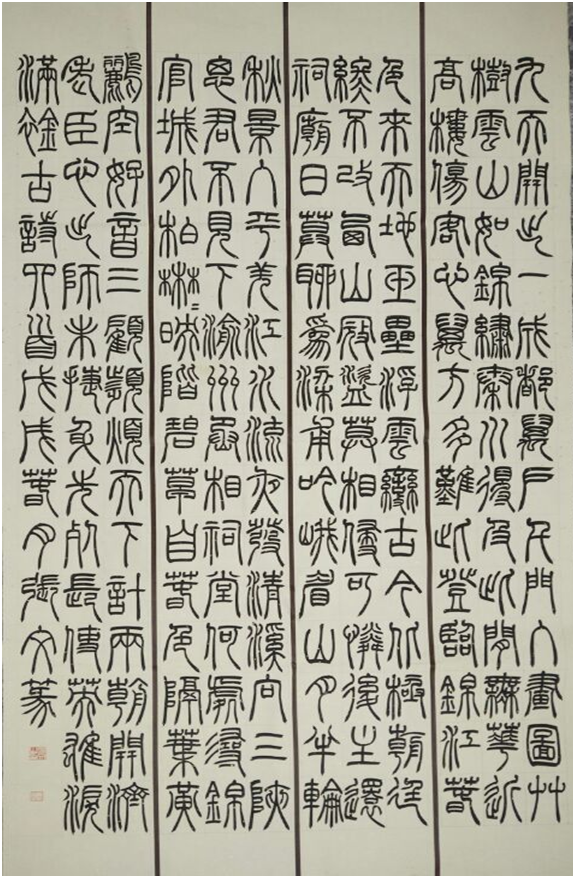 九天開出一成都萬戶千門入畫圖艸
樹雲山如錦繡秦川得及此間無華近
高樓傷客心萬方多難此登臨錦江春
色來天地玉壘浮雲變古今北極朝廷
終不改西山寇盜莫相侵可憐後主還
祠廟日暮聊為梁甫吟峨眉山月半輪
秋景入平羌江水流夜發清溪向三陝
思君不見下渝州丞相祠堂何處尋錦
官城外柏森〻映階碧草自春色隔葉黃
鸝空好音三顧頻煩天下計兩朝開濟
老臣心出師未捷身先死長使英雄淚
滿襟古詩四首戊戌春月張文篆